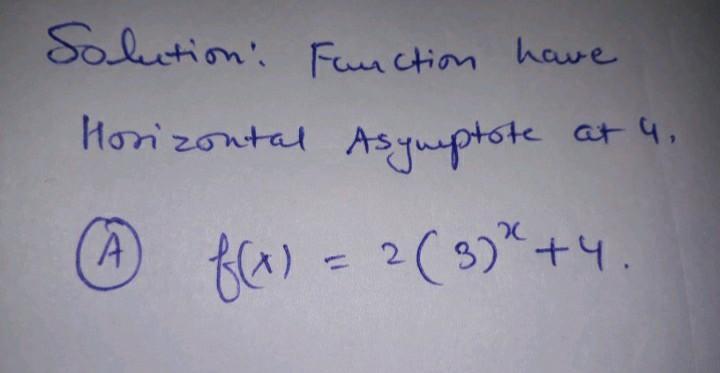 Solution: Function have
Horizontal Asymptote at 4.
(A) f(x) = 2(3)^x + 4.